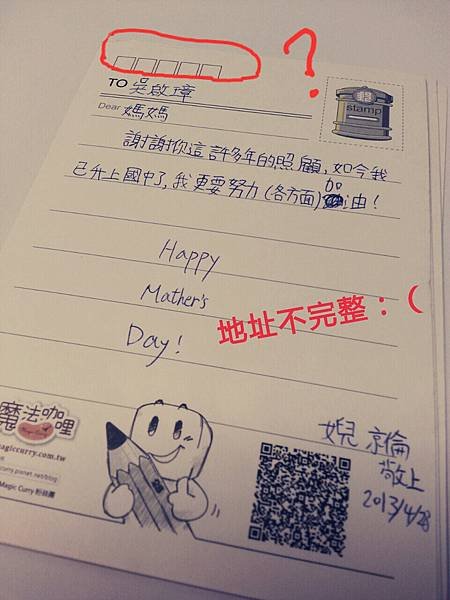 ?
TO 吳啟璋
stamp
Dear 媽媽
謝謝你這許多年的照顧,如今我
已升上國中了,我更要努力(各方面)加油!
Happy
Mather's
Day!
地址不完整:(
魔法咖哩
magiccurry.com.tw
Magic Curry 粉絲團
女兒 京倫
敬上
2013/4/28